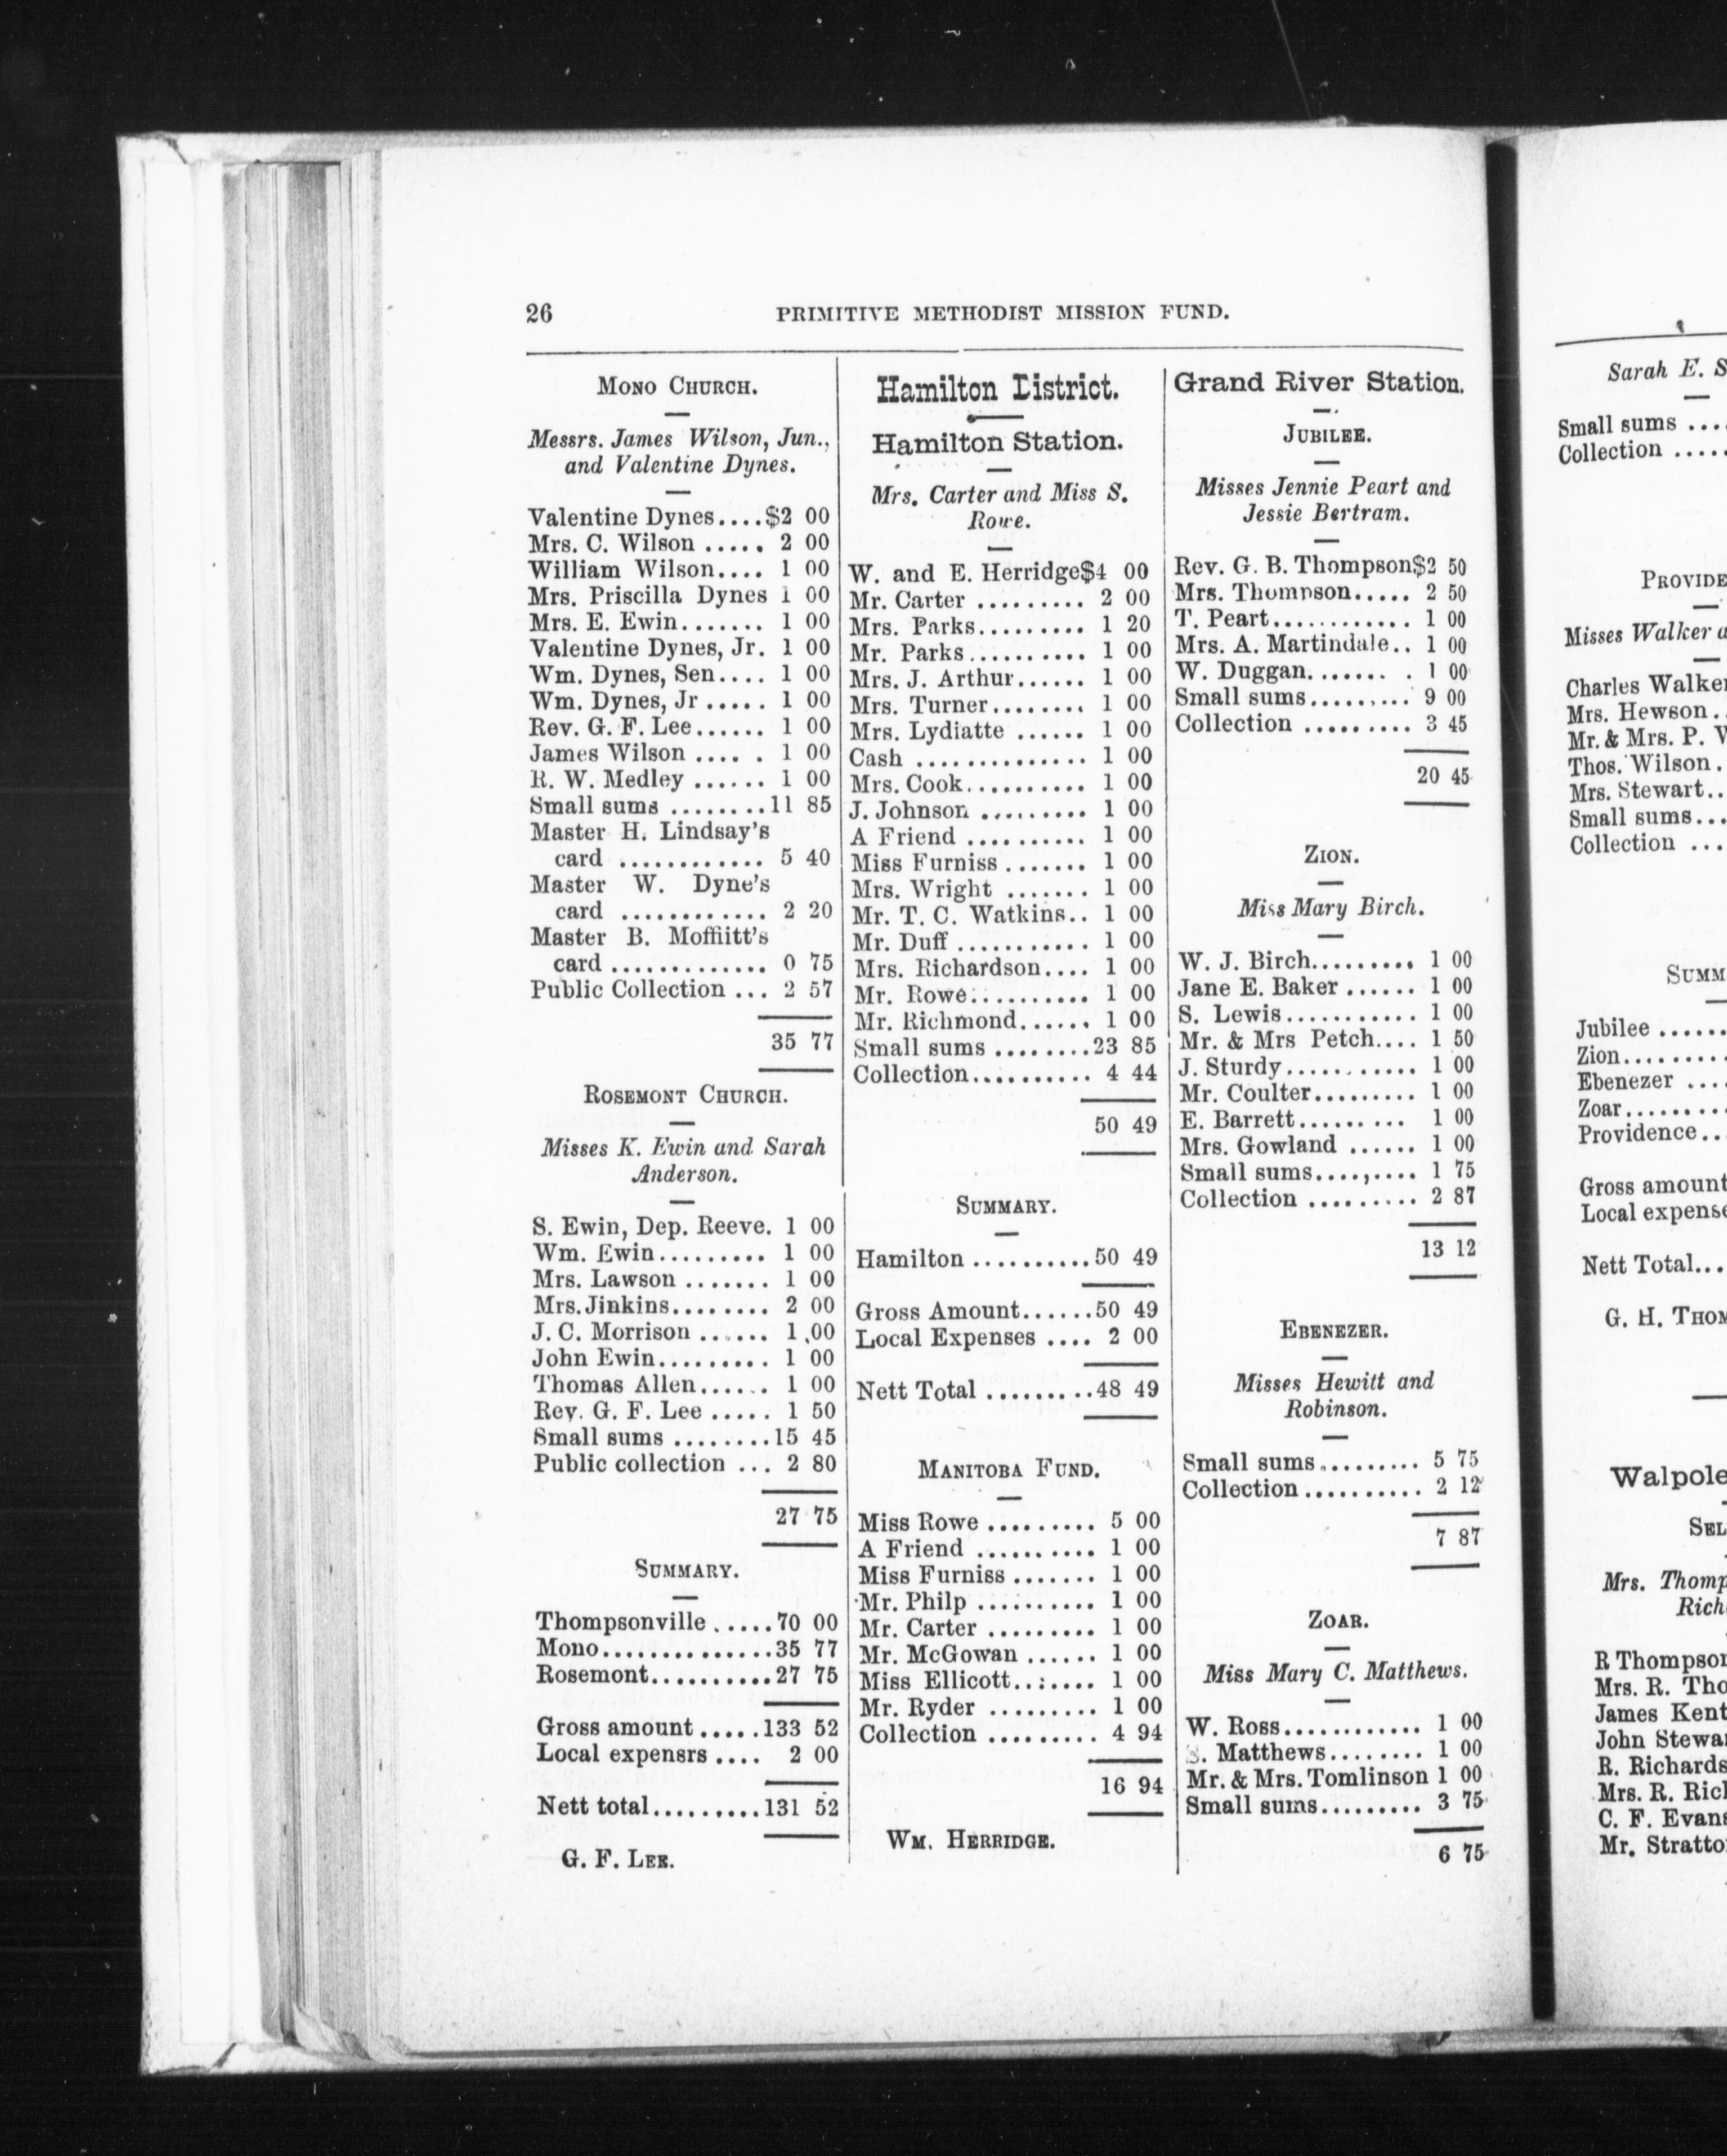 26 PRIMITIVE METHODIST MISSION FUND.
MONO CHURCH.
Messrs. James Wilson, Jun.,
and Valentine Dynes.
Valentine Dynes....$2 00
Mrs. C. Wilson ..... 2 00
William Wilson.... 1 00
Mrs. Priscilla Dynes 1 00
Mrs. E. Ewin....... 1 00
Valentine Dynes, Jr. 1 00
Wm. Dynes, Sen.... 1 00
Wm. Dynes, Jr ..... 1 00
Rev. G. F. Lee...... 1 00
James Wilson .... . 1 00
R. W. Medley ...... 1 00
Small sums ........11 85
Master H. Lindsay's
card ............ 5 40
Master W. Dyne's
card ............ 2 20
Master B. Moffiitt's
card ............. 0 75
Public Collection ... 2 57
35 77
ROSEMONT CHURCH.
Misses K. Ewin and Sarah
Anderson.
S. Ewin, Dep. Reeve. 1 00
Wm. Ewin......... 1 00
Mrs. Lawson ....... 1 00
Mrs. Jinkins........ 2 00
J. C. Morrison ...... 1 00
John Ewin......... 1 00
Thomas Allen...... 1 00
Rev. G. F. Lee ..... 1 50
Small sums ........15 45
Public collection ... 2 80
27 75
SUMMARY.
Thompsonville ......70 00
Mono..............35 77
Rosemont..........27 75
Gross amount .....133 52
Local expensrs .... 2 00
Nett total.........131 52
G. F. LEE.
Hamilton District.
Hamilton Station.
Mrs. Carter and Miss S.
Rowe.
W. and E. Herridge$4 00
Mr. Carter ......... 2 00
Mrs. Parks......... 1 20
Mr. Parks.......... 1 00
Mrs. J. Arthur...... 1 00
Mrs. Turner........ 1 00
Mrs. Lydiatte ...... 1 00
Cash .............. 1 00
Mrs. Cook.......... 1 00
J. Johnson ......... 1 00
A Friend .......... 1 00
Miss Furniss ....... 1 00
Mrs. Wright ....... 1 00
Mr. T. C. Watkins.. 1 00
Mr. Duff ........... 1 00
Mrs. Richardson.... 1 00
Mr. Rowe.......... 1 00
Mr. Richmond...... 1 00
Small sums ........23 85
Collection.......... 4 44
50 49
SUMMARY.
Hamilton ..........50 49
Gross Amount......50 49
Local Expenses .... 2 00
Nett Total .........48 49
MANITOBA FUND.
Miss Rowe ......... 5 00
A Friend .......... 1 00
Miss Furniss ....... 1 00
Mr. Philp .......... 1 00
Mr. Carter ......... 1 00
Mr. McGowan ...... 1 00
Miss Ellicott..:.... 1 00
Mr. Ryder ......... 1 00
Collection ......... 4 94
16 94
WM. HERRIDGE.
Grand River Station.
JUBILEE.
Misses Jennie Peart and
Jessie Bertram.
Rev. G. B. Thompson$2 50
Mrs. Thompson..... 2 50
T. Peart............ 1 00
Mrs. A. Martindale.. 1 00
W. Duggan....... . 1 00
Small sums......... 9 00
Collection ......... 3 45
20 45
ZION.
Miss Mary Birch.
W. J. Birch......... 1 00
Jane E. Baker ...... 1 00
S. Lewis........... 1 00
Mr. & Mrs Petch.... 1 50
J. Sturdy........... 1 00
Mr. Coulter......... 1 00
E. Barrett......... 1 00
Mrs. Gowland ...... 1 00
Small sums....,.... 1 75
Collection ......... 2 87
13 12
EBENEZER.
Misses Hewitt and
Robinson.
Small sums......... 5 75
Collection .......... 2 12
7 87
ZOAR.
Miss Mary C. Matthews.
W. Ross............ 1 00
S. Matthews........ 1 00
Mr. & Mrs. Tomlinson 1 00
Small sums......... 3 75
6 75
Sarah E. S
Small sums ....
Collection .....
PROVIDE
Misses Walker a
Charles Walker
Mrs. Hewson..
Mr. & Mrs. P. W
Thos. Wilson.
Mrs. Stewart..
Small sums...
Collection ...
SUMM
Jubilee ......
Zion.........
Ebenezer ....
Zoar.........
Providence..
Gross amount
Local expense
Nett Total...
G. H. THOM
Walpole
SEL
Mrs. Thomp
Rich
R Thompson
Mrs. R. Tho
James Kent
John Stewar
R. Richards
Mrs. R. Rich
C. F. Evans
Mr. Stratto